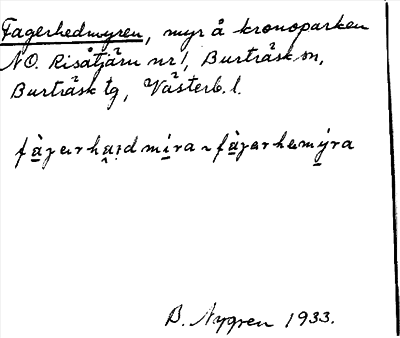 Fagerhedmyren, myr å kronoparken
NO. Risåtjärn nr 1, Burträsk sn,
Burträsk tg, Västerb. l.
B. Nygren 1933.